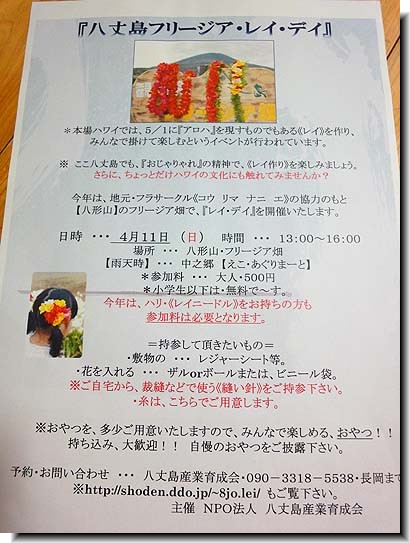 『八丈島フリージア・レイ・デイ』
＊本場ハワイでは、5／1に『アロハ』を現すものでもある《レイ》を作り、
みんなで掛けて楽しむというイベントが行われています。
※ ここ八丈島でも、『おじゃりゃれ』の精神で、《レイ作り》を楽しみましょう。
さらに、ちょっとだけハワイの文化にも触れてみませんか？
今年は、地元・フラサークル《コウ リマ ナニ エ》の協力のもと
【八形山】のフリージア畑で、『レイ・デイ』を開催いたします。
日時 ・・・ 4月11日（日） 時間 ・・・ 13:00〜16:00
場所 ・・・ 八形山・フリージア畑
【雨天時】 ・・・ 中之郷 【えこ・あぐりまーと】
＊参加料 ・・・ 大人・500円
＊小学生以下は・無料で〜す。
今年は、ハリ・《レイニードル》をお持ちの方も
参加料は必要となります。
＝持参して頂きたいもの＝
・敷物の ・・・ レジャーシート等。
・花を入れる ・・・ ザルorボールまたは、ビニール袋。
※ご自宅から、裁縫などで使う《縫い針》をご持参下さい。
・糸は、こちらでご用意します。
※おやつを、多少ご用意いたしますので、みんなで楽しめる、おやつ！！
持ち込み、大歓迎！！ 自慢のおやつをご披露下さい。
予約・お問い合わせ ・・・ 八丈島産業育成会・090－3318－5538・長岡まで
※http://shoden.ddo.jp/~8jo.lei/ もご覧下さい。
主催 NPO法人 八丈島産業育成会